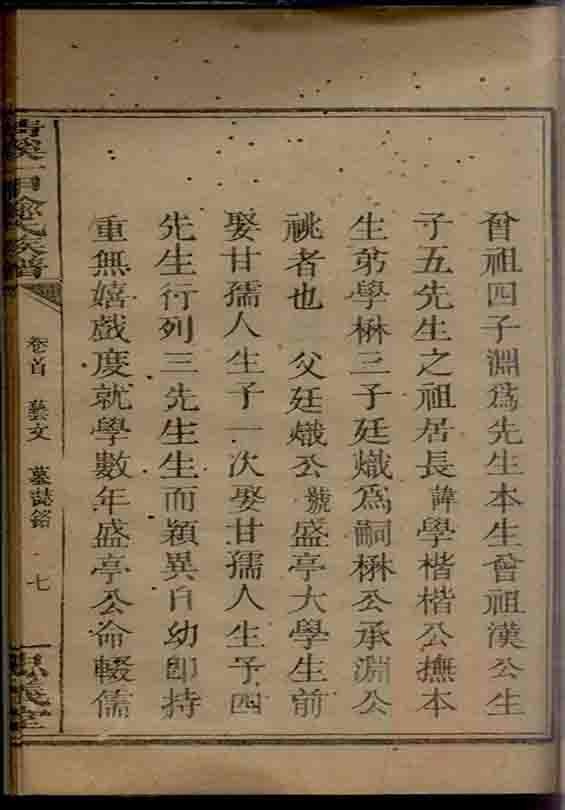 曾祖四子淵爲先生本生曾祖漢公生
子五先生之祖居長諱學楷楷公撫本
生弟學楙三子廷熾爲嗣楙公承淵公
祧者也　父廷熾公號盛亭大學生前
娶甘孺人生子一次娶甘孺人生子四
先生行列三先生生而穎異自幼即持
重無嬉戲度就學數年盛亭公命輟儒
一甲徐氏族譜
卷首　藝文　墓誌銘　七